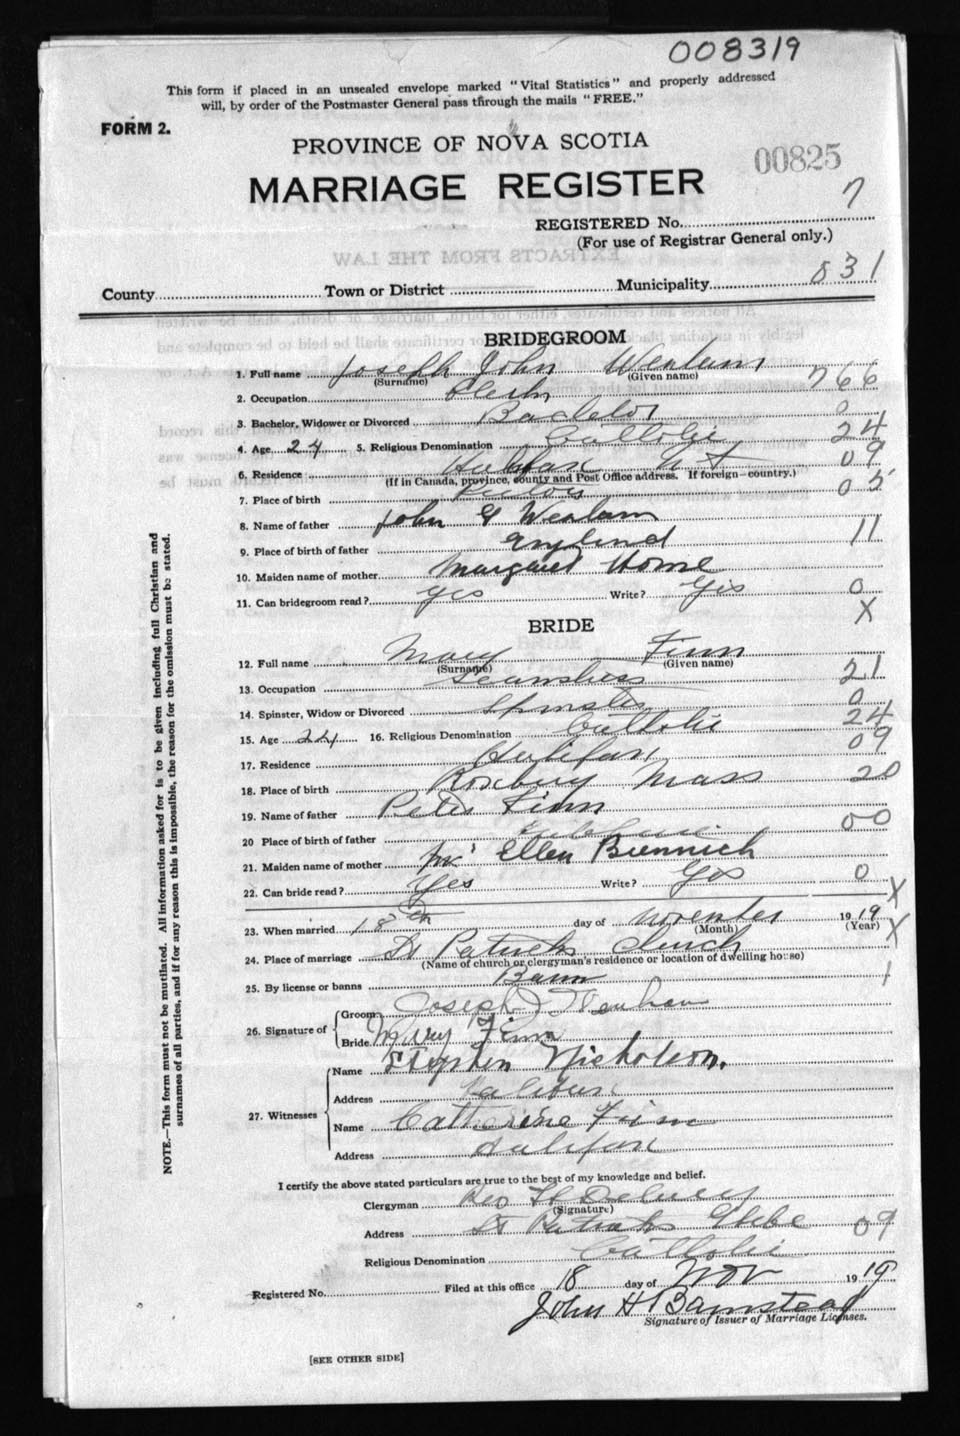 008319
This form if placed in an unsealed envelope marked "Vital Statistics" and properly addressed
will, by order of the Postmaster General pass through the mails "FREE."
FORM 2.
PROVINCE OF NOVA SCOTIA
00825
MARRIAGE REGISTER
REGISTERED No. 7
(For use of Registrar General only.)
EXTRACTS FROM THE LAW
County Town or District Municipality 831
BRIDEGROOM
1. Full name Joseph John
(Surname) (Given name)
2. Occupation Clerk 766
3. Bachelor, Widower or Divorced Bachelor 0
4. Age 24 5. Religious Denomination Catholic 24
6. Residence Halifax 09
(If in Canada, province, county and Post Office address. If foreign—country.)
7. Place of birth 05
8. Name of father John
9. Place of birth of father England 11
10. Maiden name of mother Margaret Horne
11. Can bridegroom read? Yes Write? Yes 0
X
BRIDE
12. Full name Mary Finn
(Surname) (Given name)
13. Occupation Seamstress 21
14. Spinster, Widow or Divorced Spinster 0
15. Age 24 16. Religious Denomination Catholic 24
17. Residence Halifax 09
18. Place of birth Roxbury Mass 20
19. Name of father Peter Finn
20 Place of birth of father 00
21. Maiden name of mother Ellen
22. Can bride read? Yes Write? Yes 0
X
23. When married 18th day of November 1919
(Month) (Year)
X
24. Place of marriage St Patricks Church
(Name of church or clergyman's residence or location of dwelling house)
25. By license or banns Bann 1
26. Signature of Groom Joseph J
Bride Mary Finn
27. Witnesses Name Stephen Nicholson.
Address Halifax
Name Catherine Finn
Address Halifax
I certify the above stated particulars are true to the best of my knowledge and belief.
Clergyman Rev
(Signature)
Address St Patricks Glebe 09
Religious Denomination Catholic
Registered No. Filed at this office 18 day of Nov 1919
John H Barnstead
Signature of Issuer of Marriage Licenses.
[SEE OTHER SIDE]
NOTE.—This form must not be mutilated. All information asked for is to be given including full Christian and
surnames of all parties, and if for any reason this is impossible, the reason for the omission must be stated.